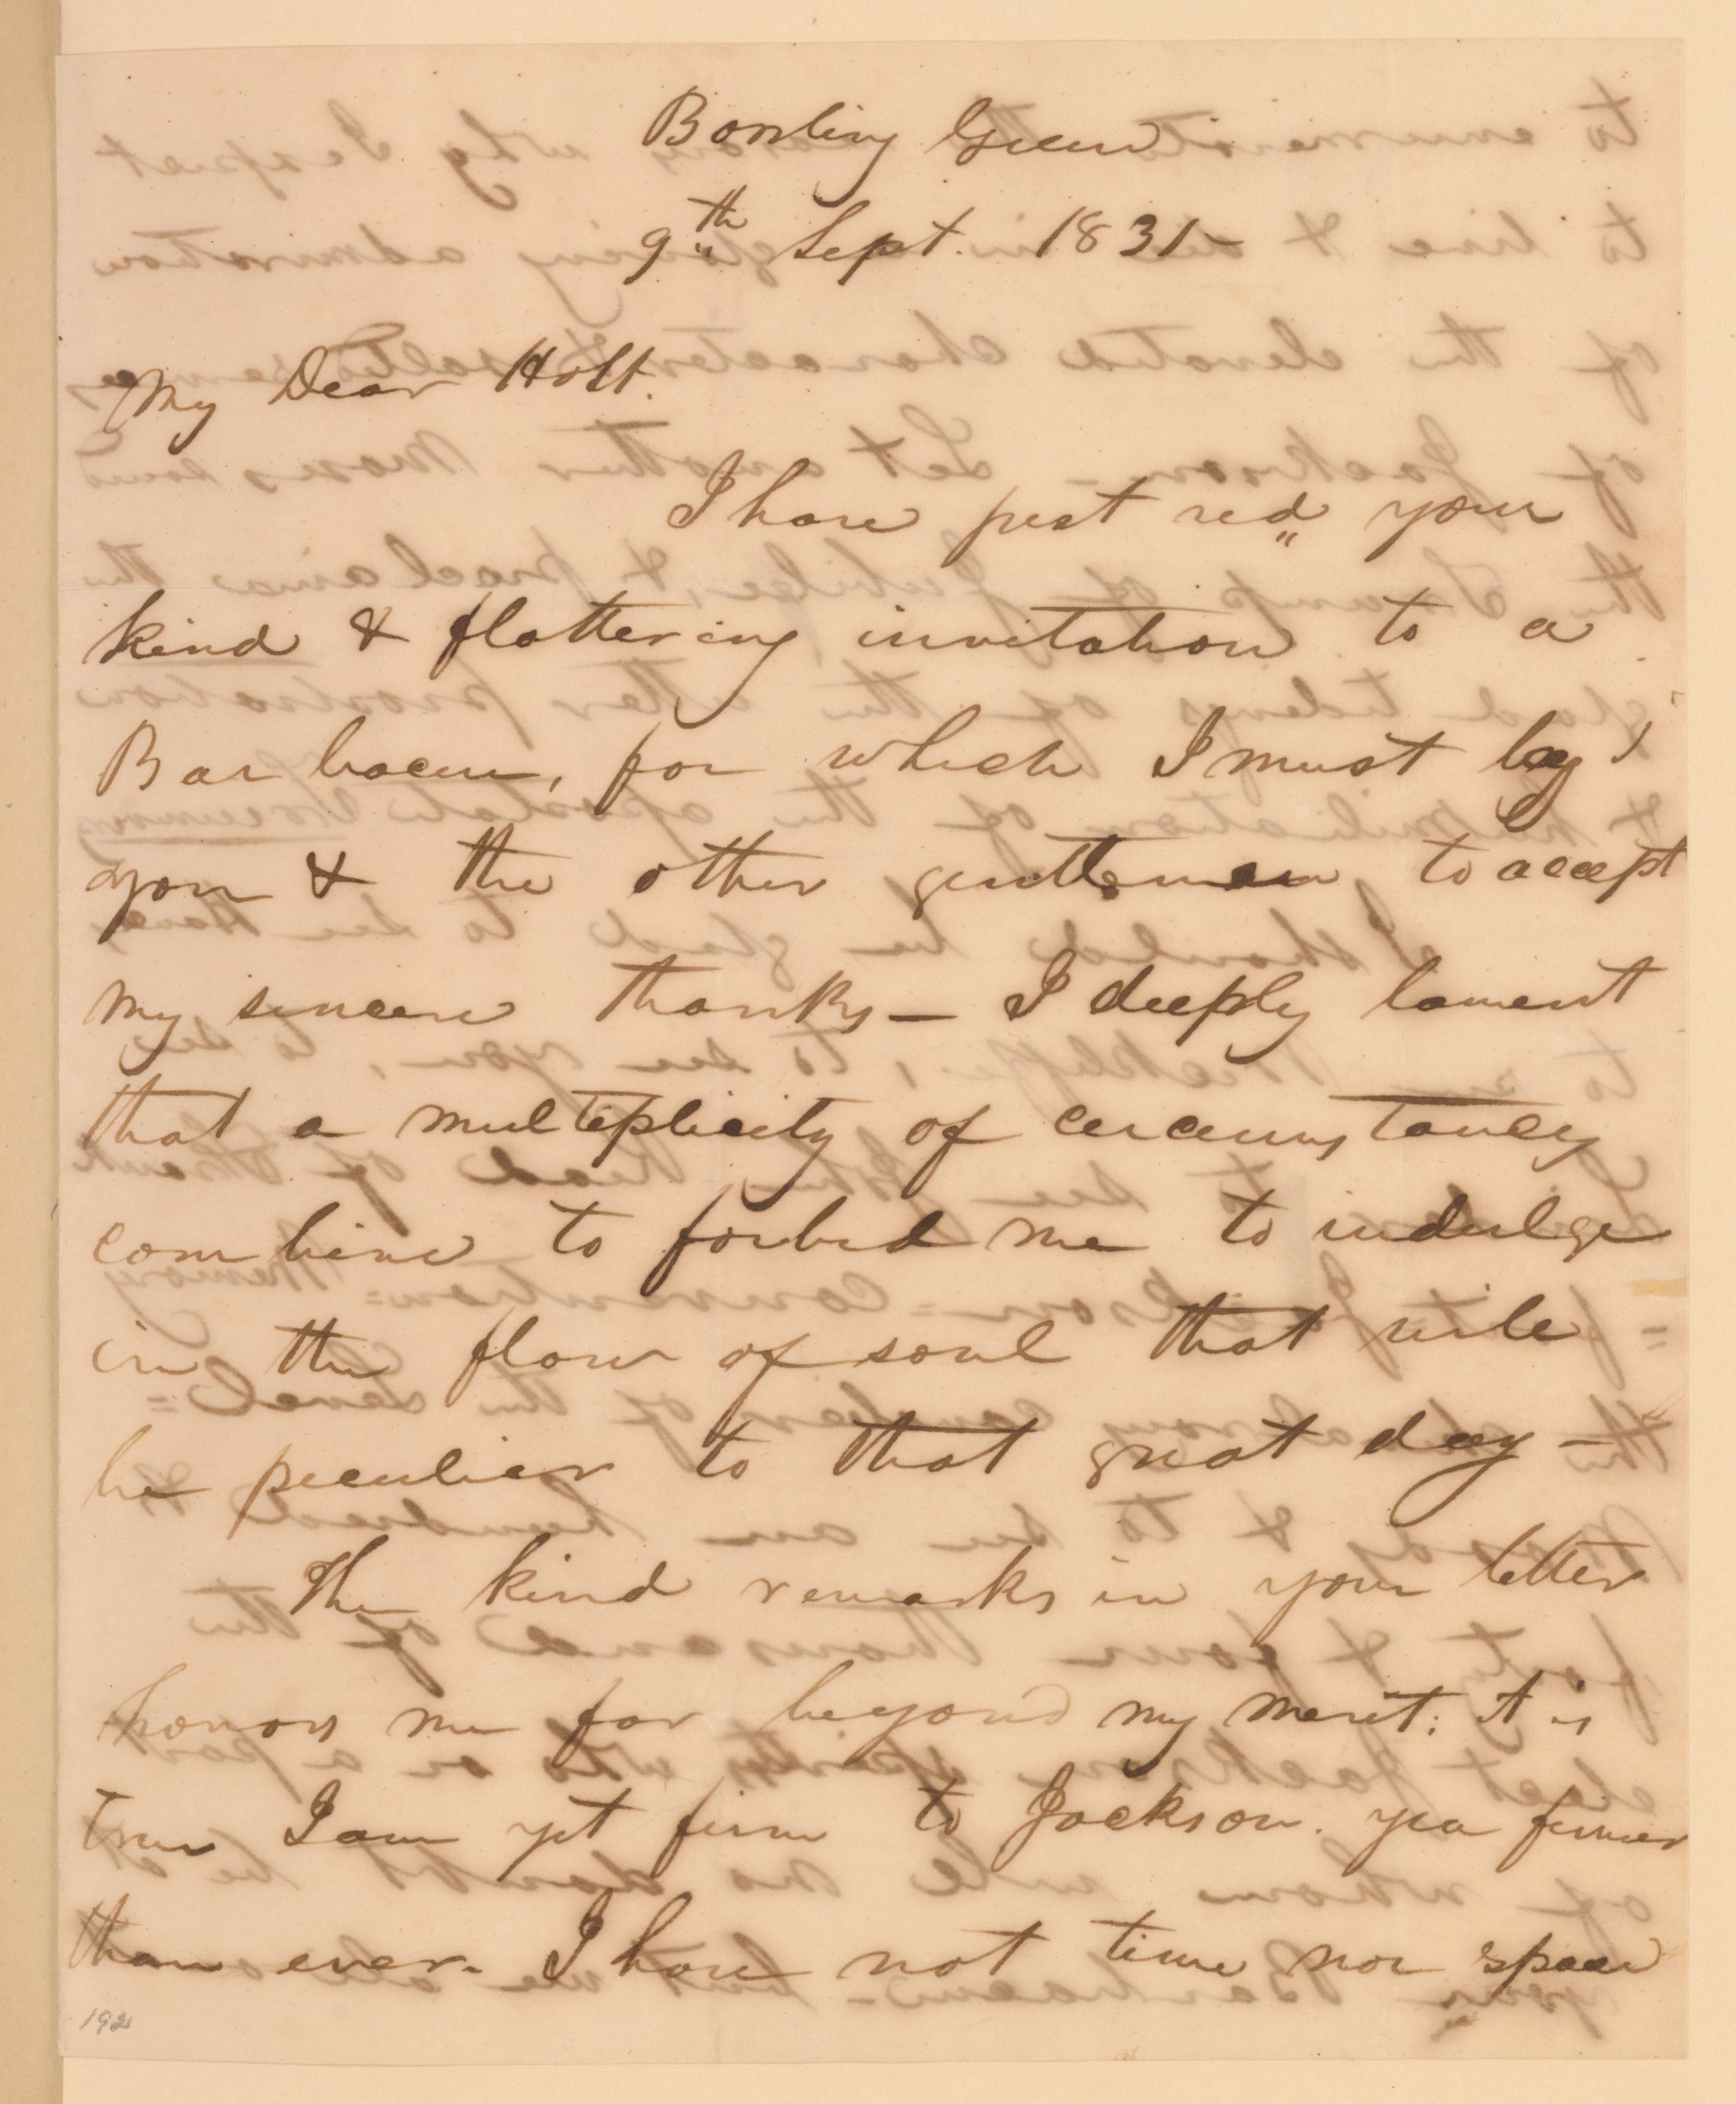 Bowling Green
9th Sept. 1831–
My Dear Holt.
I have just recd your
kind & flattering invitation to a
Barbacue, for which I must beg
you & the other gentlemen, to accept
my sincere thanks — I deeply lament
that a multiplicity of circumstances
combine to forbid me to indulge
in the flow of soul that will
be peculiar to that great day –
The kind remarks in your letter
honors me far beyond my merit: it is
true I am yet firm to Jackson. yea firmer
than ever. I have not time nor space
192